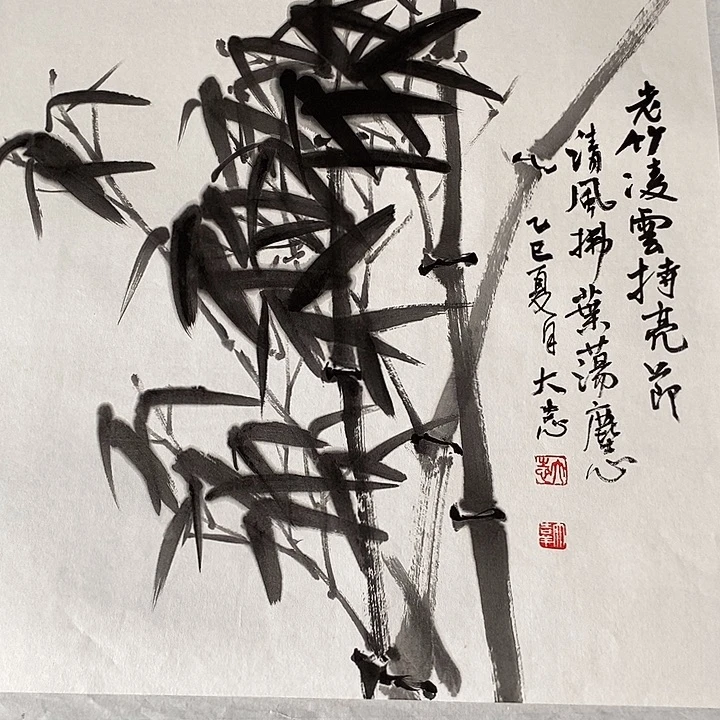 老竹凌雲持亮節
清風拂葉蕩塵心
乙巳夏月大志
大志